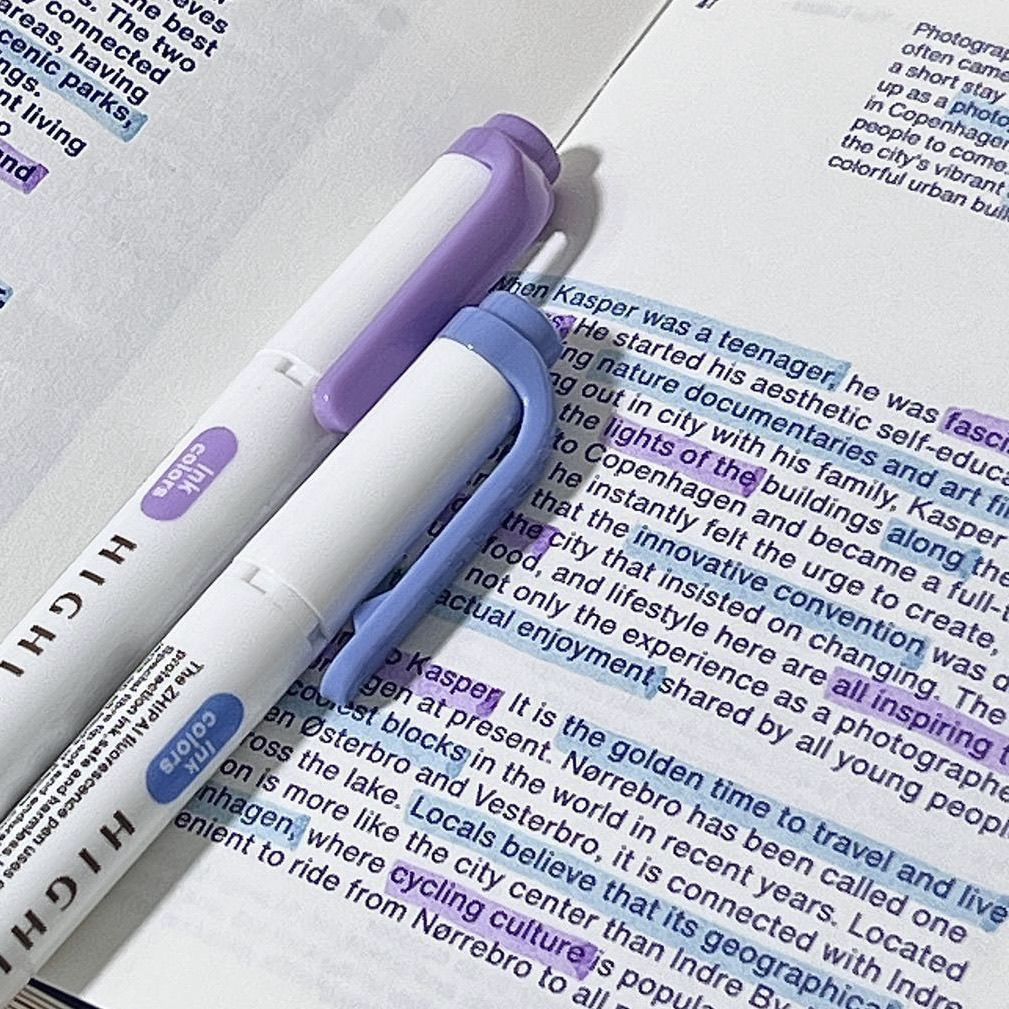 eves
the best
areas. The two
y connected
areas, having
cenic parks,
ngs.
nt living
o
and
Photograp
often came
a short stay
up as a photo
in Copenhagen
people to come.
the city's vibrant
colorful urban buil
When Kasper was a teenager, he was fasci
He started his aesthetic self-educa
ng nature documentaries and art fi
ng out in city with his family, Kasper
the lights of the buildings along the
to Copenhagen and became a full-t
he instantly felt the urge to create,
that the innovative convention was d
the city that insisted on changing. The
food, and lifestyle here are all inspiring t
not only the experience as a photographe
actual enjoyment shared by all young peopl
o Kasper, It is the golden time to travel and live
gen at present. Nørrebro has been called one
coolest blocks in the world in recent years. Located
en Østerbro and Vesterbro, it is connected with Indre
ross the lake. Locals believe that its geographical
on is more like the city center than Indre By
nhagen, where cycling culture is popula
enient to ride from Nørrebro to all
ink
colors
HIGHI
ink
colors
HIGHI
The ZHIPAI fluorescence pen uses